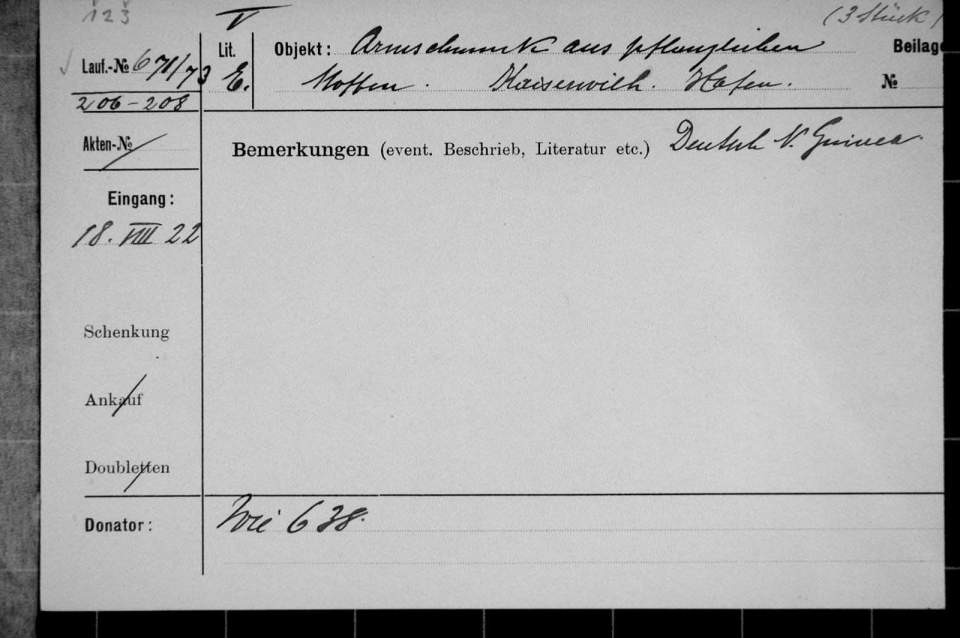 1 2 3
V
(3 Stück)
Lauf.-№ 671/73
Lit. E.
Objekt: Armschmuck aus pflanzlichen
Beilage
Stoffen. Kaiserwilh. Hafen.
№
206-208
Akten-№
Bemerkungen (event. Beschrieb, Literatur etc.) Deutsch N. Guinea
Eingang:
18. VIII 22
Schenkung
Ankauf
Doubletten
Donator: Wie 638.